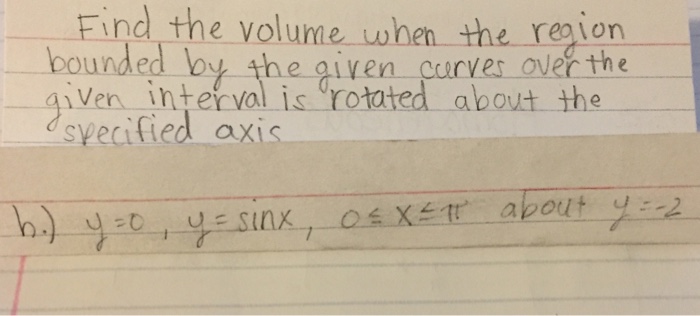 Find the volume when the region
bounded by the given curves over the
given interval is rotated about the
specified axis
b.) y=0, y=sinx, 0≤x≤π about y=-2